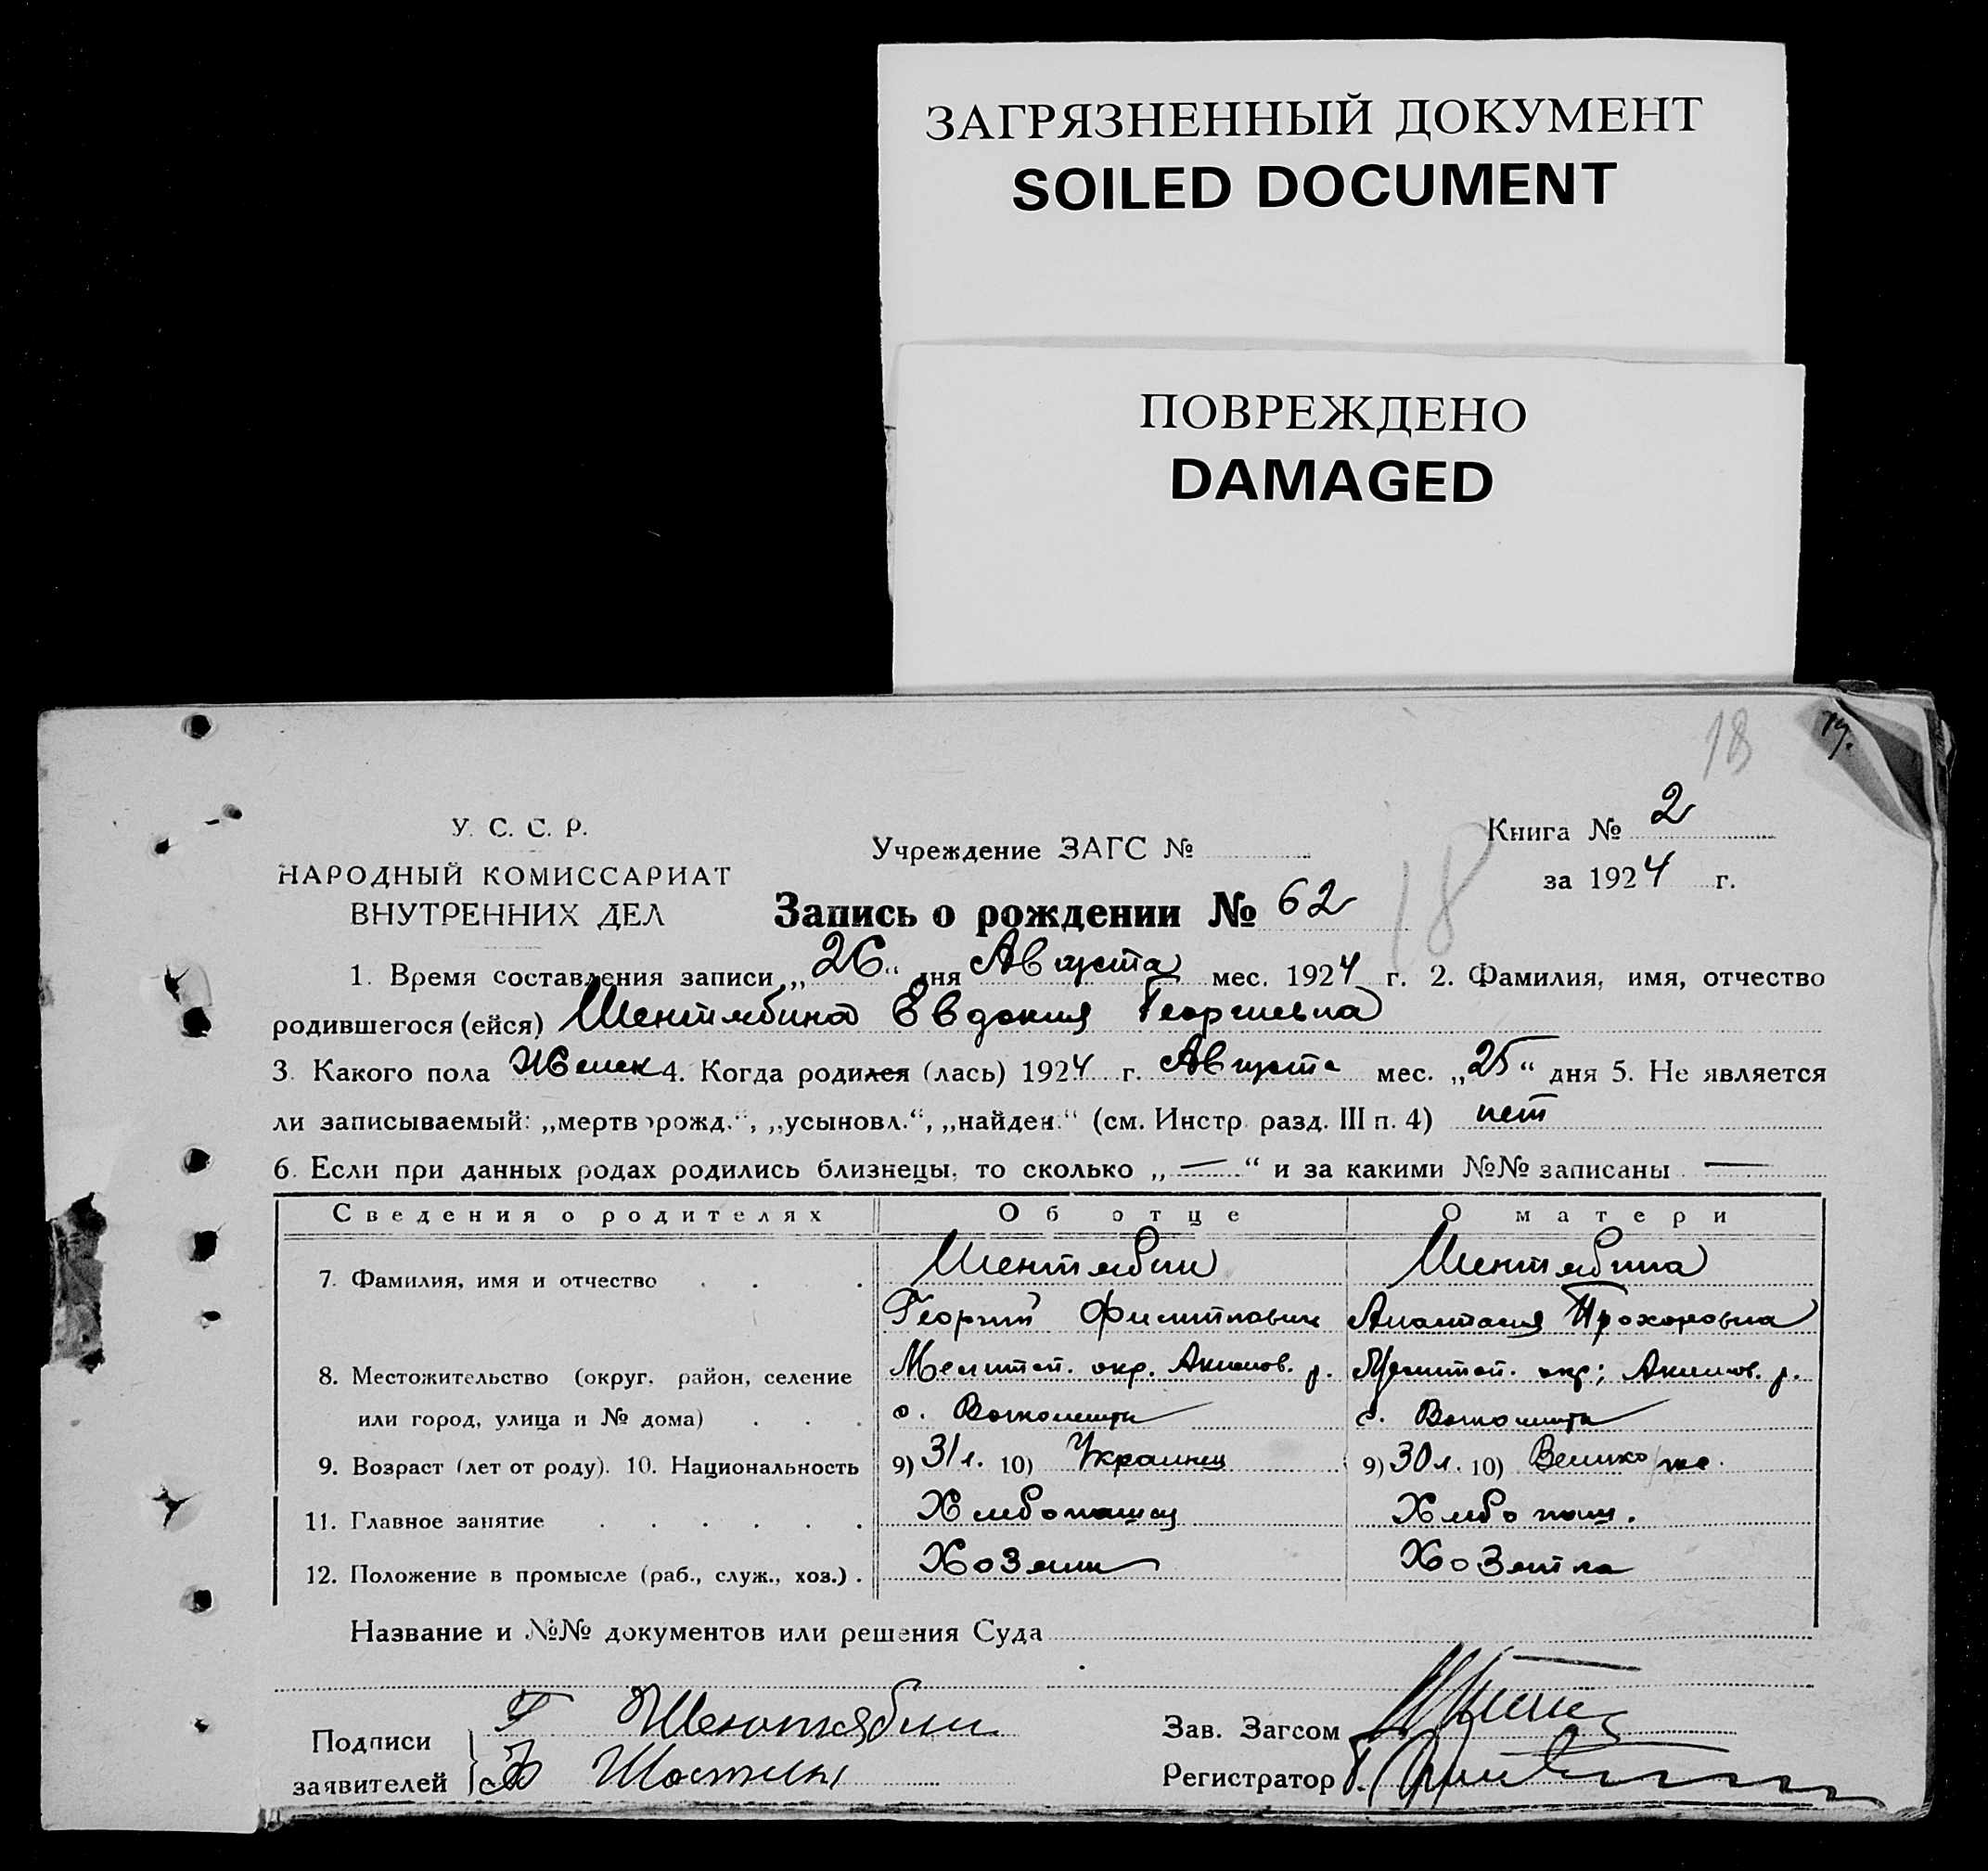 ЗАГРЯЗНЕННЫЙ ДОКУМЕНТ
SOILED DOCUMENT
ПОВРЕЖДЕНО
DAMAGED
18
19.
У. С. С. Р.
НАРОДНЫЙ КОМИССАРИАТ
ВНУТРЕННИХ ДЕЛ
Учреждение ЗАГС №
Книга № 2
за 1924 г.
18
Запись о рождении № 62
1. Время составления записи „26“ дня Августа мес. 1924 г. 2. Фамилия, имя, отчество
родившегося (ейся) Шентябина Евдокия Георгиевна
3. Какого пола Женск 4. Когда родился (лась) 1924 г. Августа мес. „25“ дня 5. Не является
ли записываемый: „мертворожд.“, „усыновл.“, „найден.“ (см. Инстр. разд. III п. 4) нет
6. Если при данных родах родились близнецы, то сколько „—“ и за какими №№ записаны —
Сведения о родителях Об отце О матери
7. Фамилия, имя и отчество . . . Шентябин Шентябина
Георгий Филиппович Анастасия Прохоровна
8. Местожительство (округ, район, селение Мелитоп. окр. Акимов. р. Мелитоп. окр; Акимов. р.
или город, улица и № дома) . . . с. с.
9. Возраст (лет от роду). 10. Национальность 9) 31 л. 10) Украинец 9) 30 л. 10) Велико
11. Главное занятие . . . . . . Хлебопашец Хлебопаш.
12. Положение в промысле (раб., служ., хоз.) . Хозяин Хозяйка
Название и №№ документов или решения Суда
Подписи
заявителей
Г Шентябин
Зав. Загсом
Регистратор